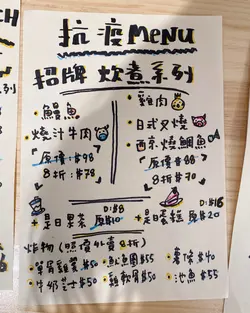 抗疫MENU
招牌 炊煮系列
鰻魚
燒汁牛肉
原價:$98
8折:$78
雞肉
日式叉燒
西京燒鯛魚
原價$88
8折$70
D:$8
+是日茶 原$10
D:$16
+是日蛋糕 原$20
炸物(照價外賣8折)
$50
魷魚圈$55
薯條$40
牛奶 $50
雞軟骨$50
池魚$55